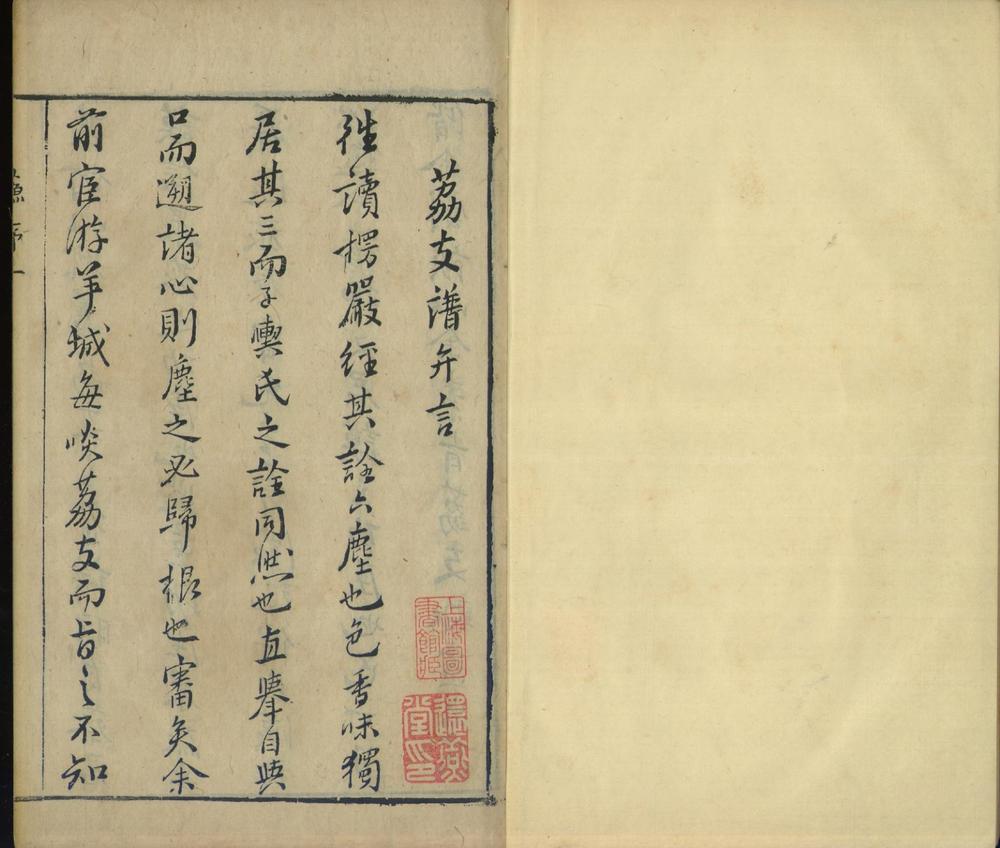 荔支譜弁言
往讀楞嚴經其詮六塵也色香味獨
居其三而子輿氏之詮同然也直擧目與
口而遡諸心則塵之必歸根也審矣余
前宦游羊城每啖荔支而旨之不知
上海圖書館藏
還燕堂印
序一